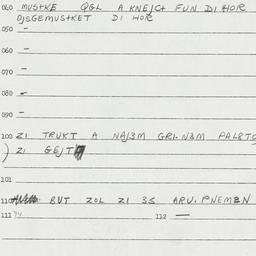 040 MUSTKE QGL A KNEJCH FUN DI HOR
OJSGEMUSTKET DI HOR
050 —
060 —
070 —
080 —
090 —
100 ZI TRUKT A NAJ3M GRI.N3M PALRTO
) ZI GEJT
101
110 RUT ZOL ZI 3S ARU.PNEMEN
111 YY 112 —